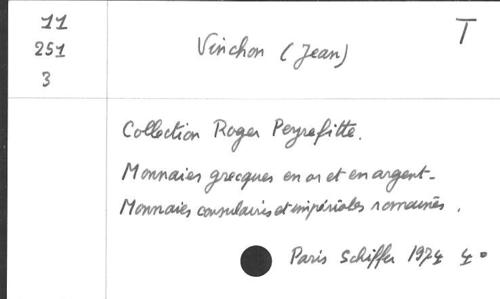 11
251
3
Vinchon (Jean)
T
Collection Roger Peyrefitte.
Monnaies grecques en or et en argent-
Monnaies consulaires et impériales romaines.
Paris Schiffer 1974 4°